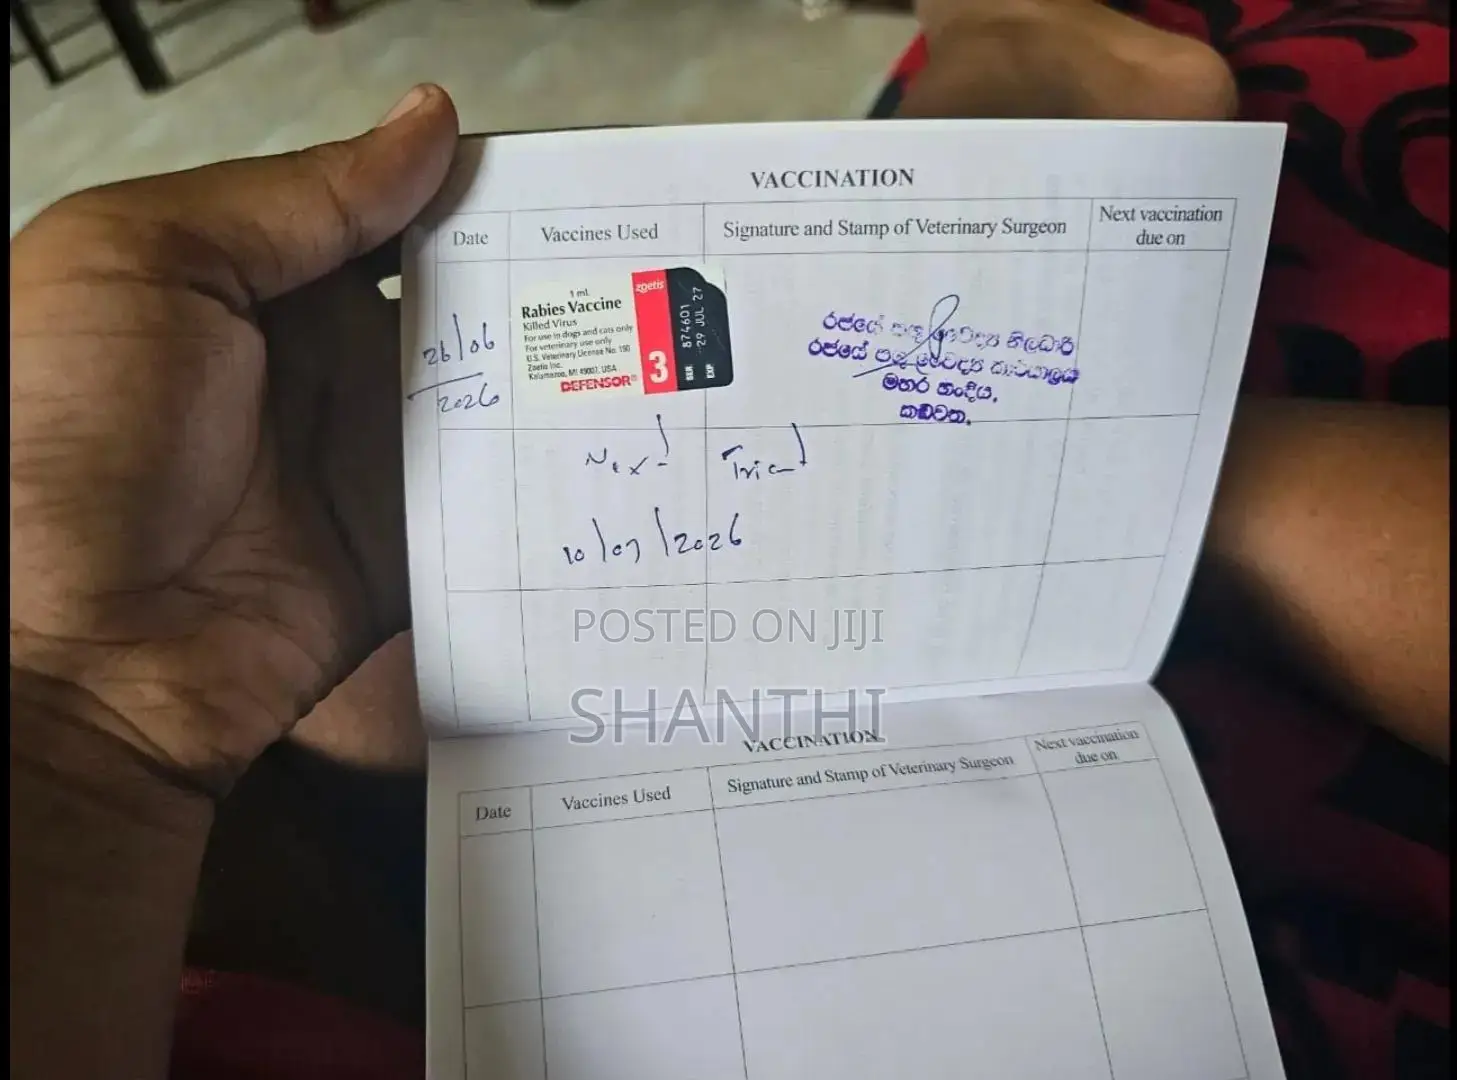 VACCINATION
Date
Vaccines Used
Signature and Stamp of Veterinary Surgeon
Next vaccination
due on
26/06
2026
1 mL
Rabies Vaccine
Killed Virus
For use in dogs and cats only
For veterinary use only
U.S. Veterinary License No. 190
Zoetis Inc.
Kalamazoo, MI 49007, USA
DEFENSOR®
zoetis
3
SER 874601
EXP 29 JUL 27
රජයේ පශු වෛද්‍ය නිලධාරී
රජයේ පශු වෛද්‍ය කාර්යාලය
මහර හංදිය,
කඩවත.
Next
10/07/2026
POSTED ON JIJI
SHANTHI
VACCINATION
Date
Vaccines Used
Signature and Stamp of Veterinary Surgeon
Next vaccination
due on